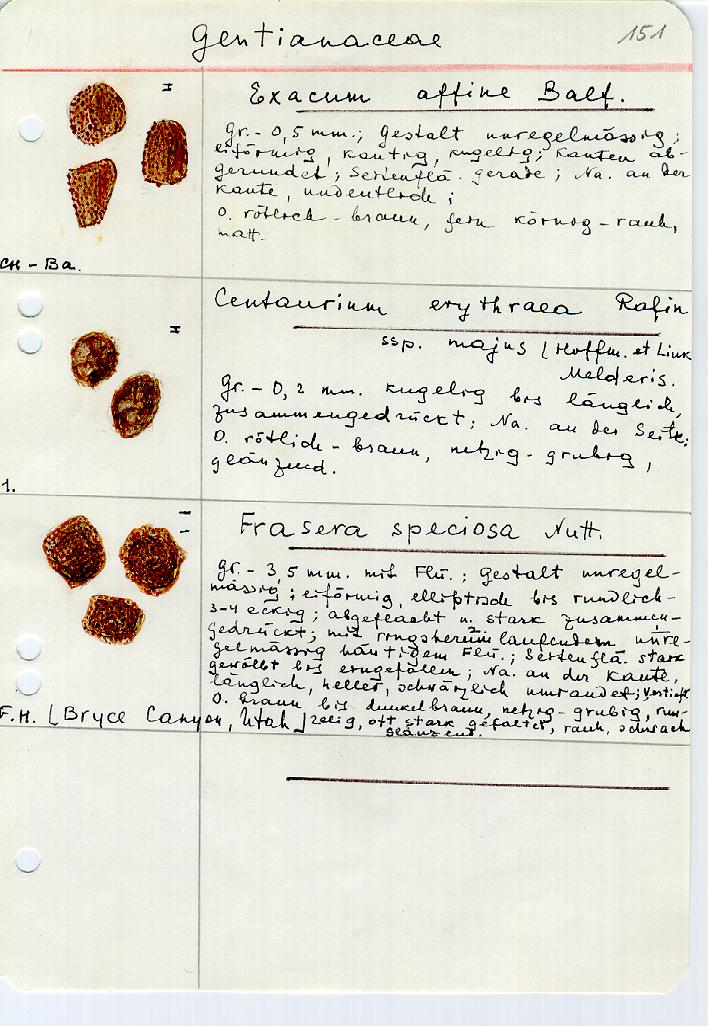 Gentianaceae 151
Exacum affine Balf.
Gr. - 0,5 mm.; Gestalt unregelmässig;
eiförmig, kantig, kugelig; Kanten ab-
gerundet; Seitenflä. gerade; Na. an der
Kante, undeutlich;
O. rötlich - braun, fein körnig - rauh,
matt.
CH - Ba.
Centaurium erythraea Rafin
ssp. majus (Hoffm. et Link
Melderis.
Gr. - 0,2 mm. Kugelig bis länglich,
zusammengedrückt; Na. an der Seite;
O. rötlich - braun, netzig - grubig,
glänzend.
1.
Frasera speciosa Nutt.
Gr. - 3,5 mm. mit Flü.; Gestalt unregel-
mässig; eiförmig, elliptisch bis rundlich -
3-4 eckig; abgeflacht u. stark zusammen-
gedrückt; mit ringsherum laufendem unre-
gelmässig häutigem Flü.; Seitenflä. stark
gewölbt bis eingefallen; Na. an der Kante,
länglich, heller, schwärzlich umrandet; vertieft
O. braun bis dunkelbraun, netzig - grubig, run-
F.H. (Bryce Canyon, Utah) zelig, oft stark gefaltet, rauh, schwach
glänzend.